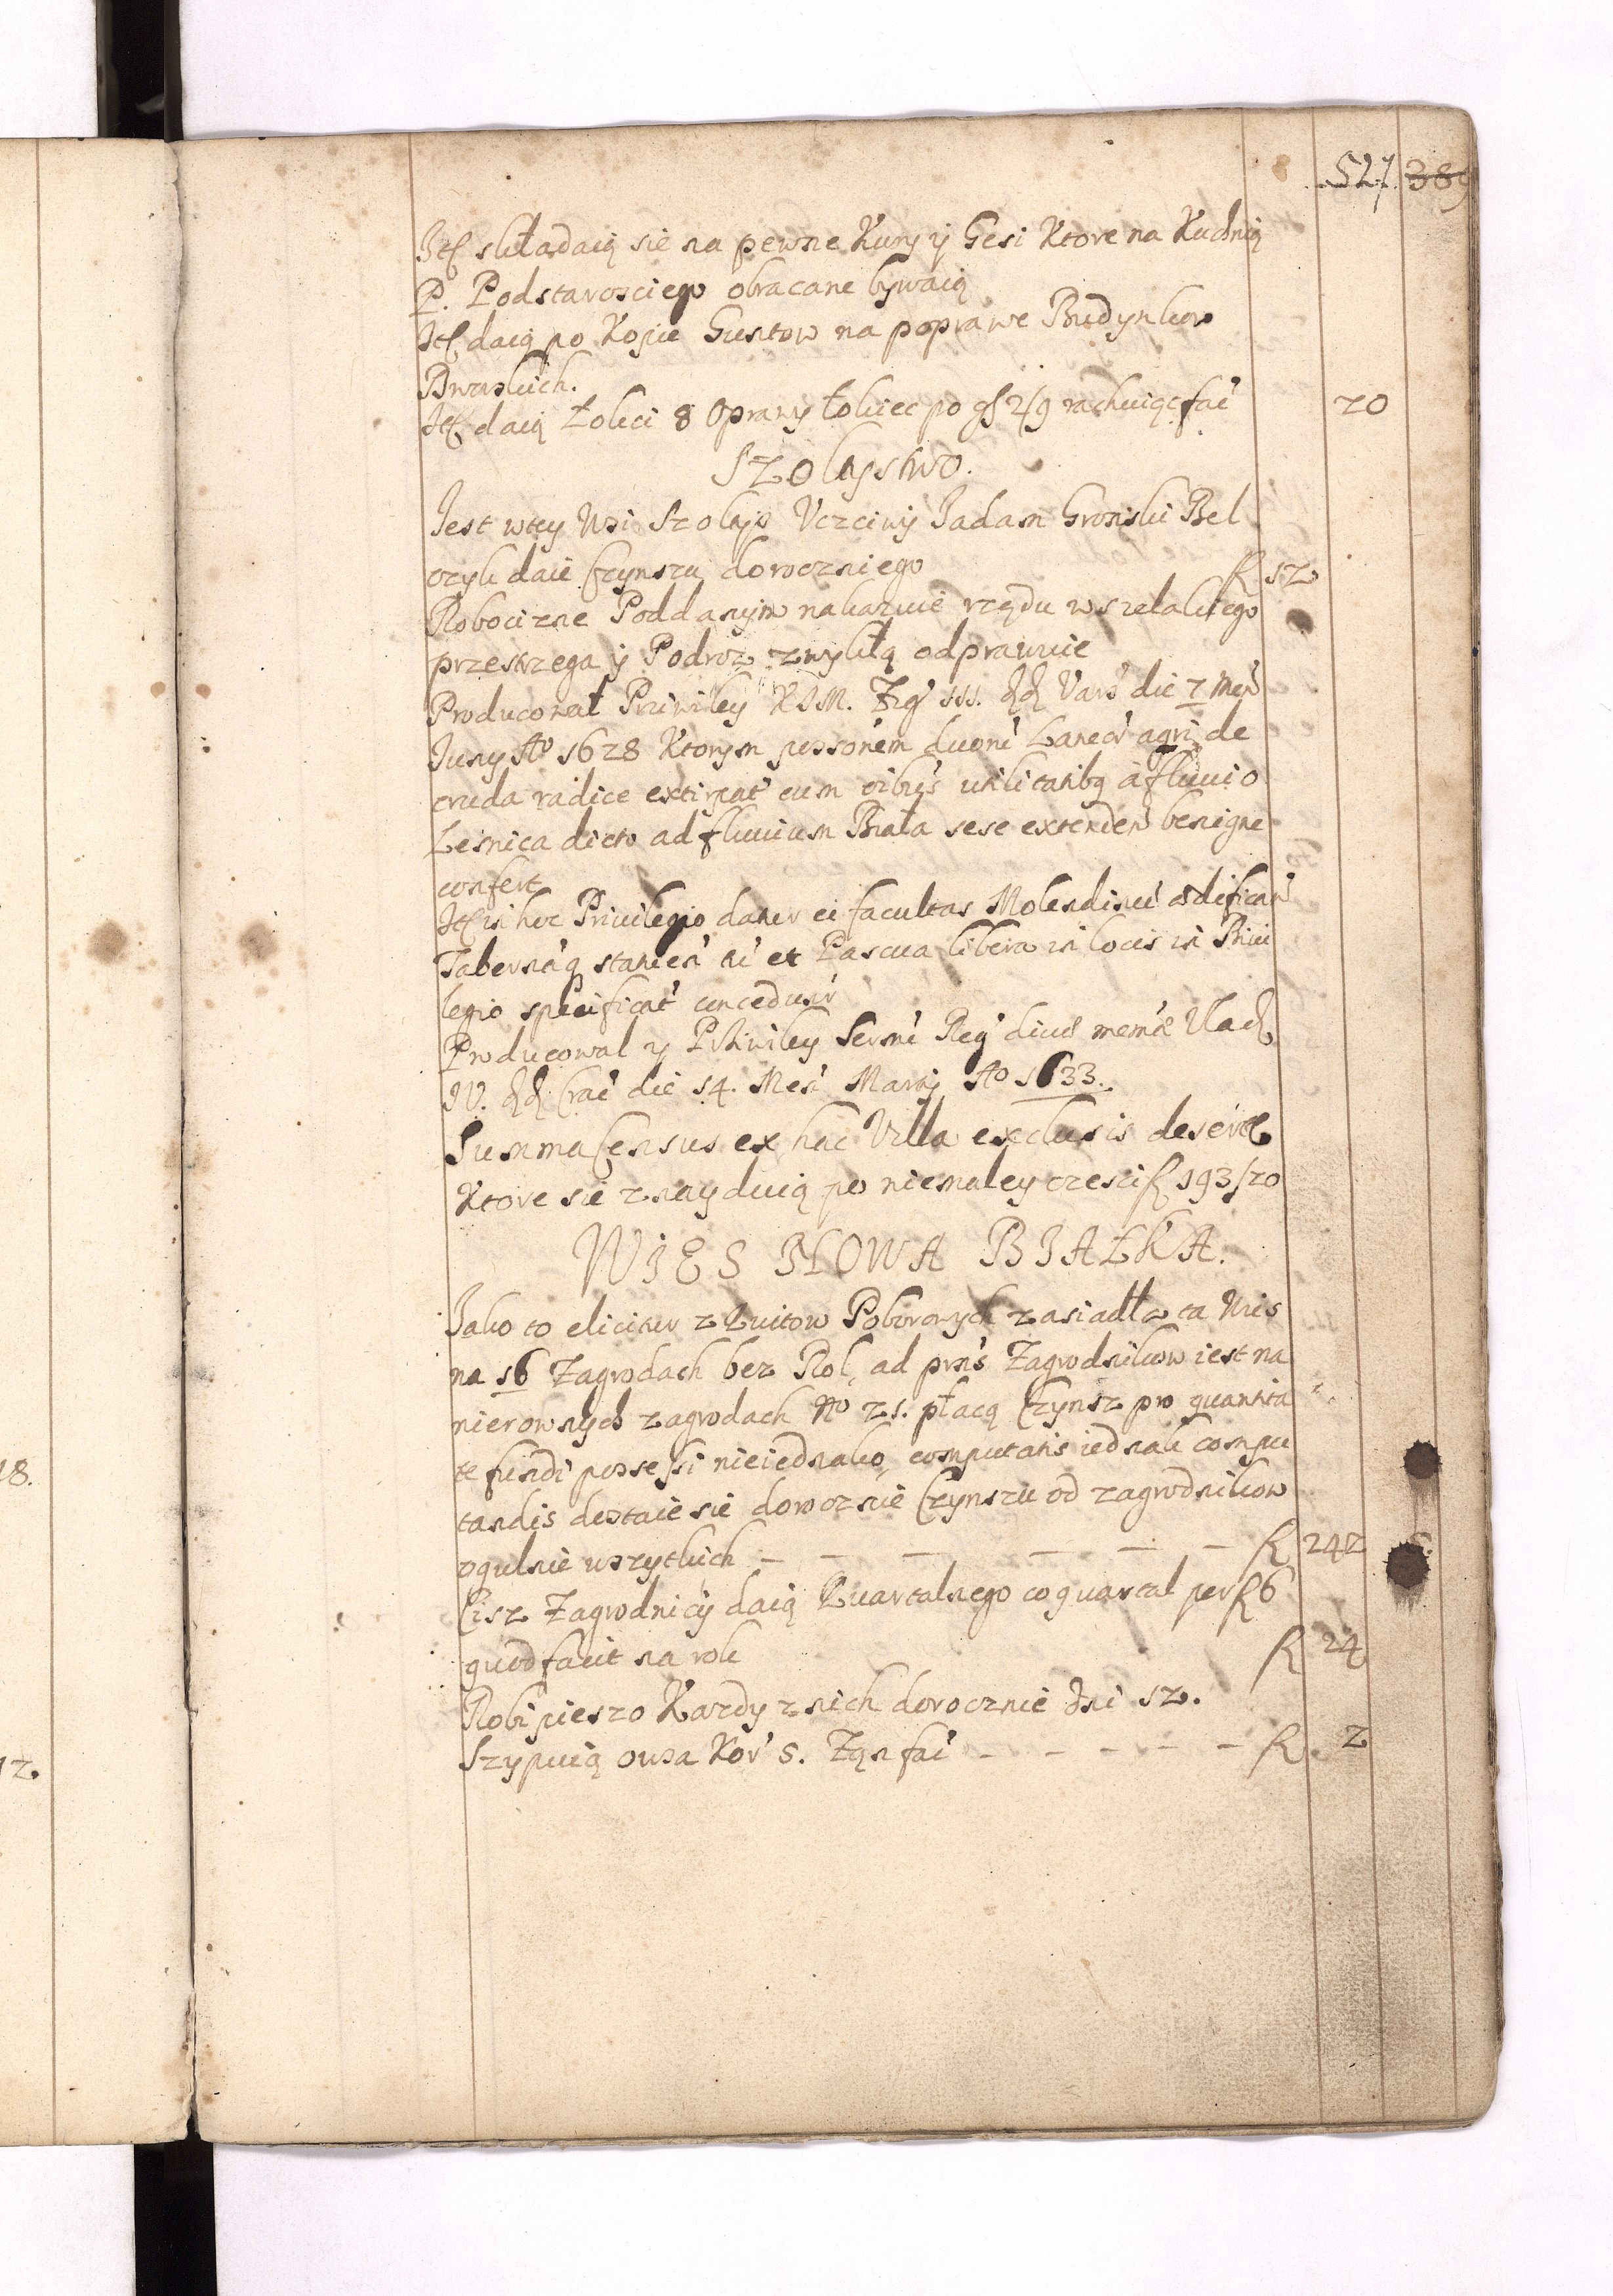 527. 389
Itē składaią sie na pewne Kury ÿ Gesi Ktore na Kuchnią
P. Podstarosciego obracane bywaią
Itē daią po Kopie Guntow na poprawe Budynkow
Dworskich.
Itē daią Łokci 8 Oprawy Łokiec po gſ 2/9 rachuiąc fać 20
Szołtystwo.
Iest wtey Wsi Szołtys Vczciwÿ Jadam Gronski Bel
czyk daie Czynszu doroczniego ƒ 12
Robocizne Poddanym nakazuie rządu wszelakiego
przestrzega ÿ Podroz zwykłą odprawuie
Producował Priwiley KJM. Zyg III. Vars die 7 Men
Juny Aō 1628 Ktorym possonem duoru Laneor agri de
cruda radice extirpat cum oibus utilitatibq a fluuio
Lesnica dicto ad fluuium Biała sese extenden benigne
confert
Itē in hoc Priuilegio datur ei facultas Molendinu ædifican
Tabernaq stanen tu et Pascua libera in locis in Priui
legio specificat conceduntr
Producowal y Prziwiley Sermi Reg diuæ memæ Vlad
IV. Crac die 14. Men Marty Aō 1633.
Summa Census ex hac Villa exclusis desert
Ktore sie znayduią po niemałey czesci ƒ 193/20
WIES NOWA BIAŁKA.
Jako to elicitur z kwitow Poborowych zasiadła ta Wies
na 16 Zagrodach bez Rol, ad præns Zagrodnikow iest na
nierownych zagrodach Nō 21. płacą Czynsz pro quantita
te fundi possessi nieiednako, computatis iednak compu
tandis dostaie sie dorocznie Czynszu od zagrodnikow
ogulnie wszytkich — — — — — — ƒ 242
Cisz Zagrodnicÿ daią Kwartalnego co quartal per ƒ 6
quod facit na rok ƒ 24
Robi pieszo Kazdy z nich dorocznie dni 12.
Szypuią owsa Kor 5. Ząn fać — — — — — ƒ 2
18.
12.